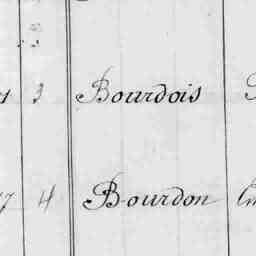 3 Bourdois
7 4 Bourdon